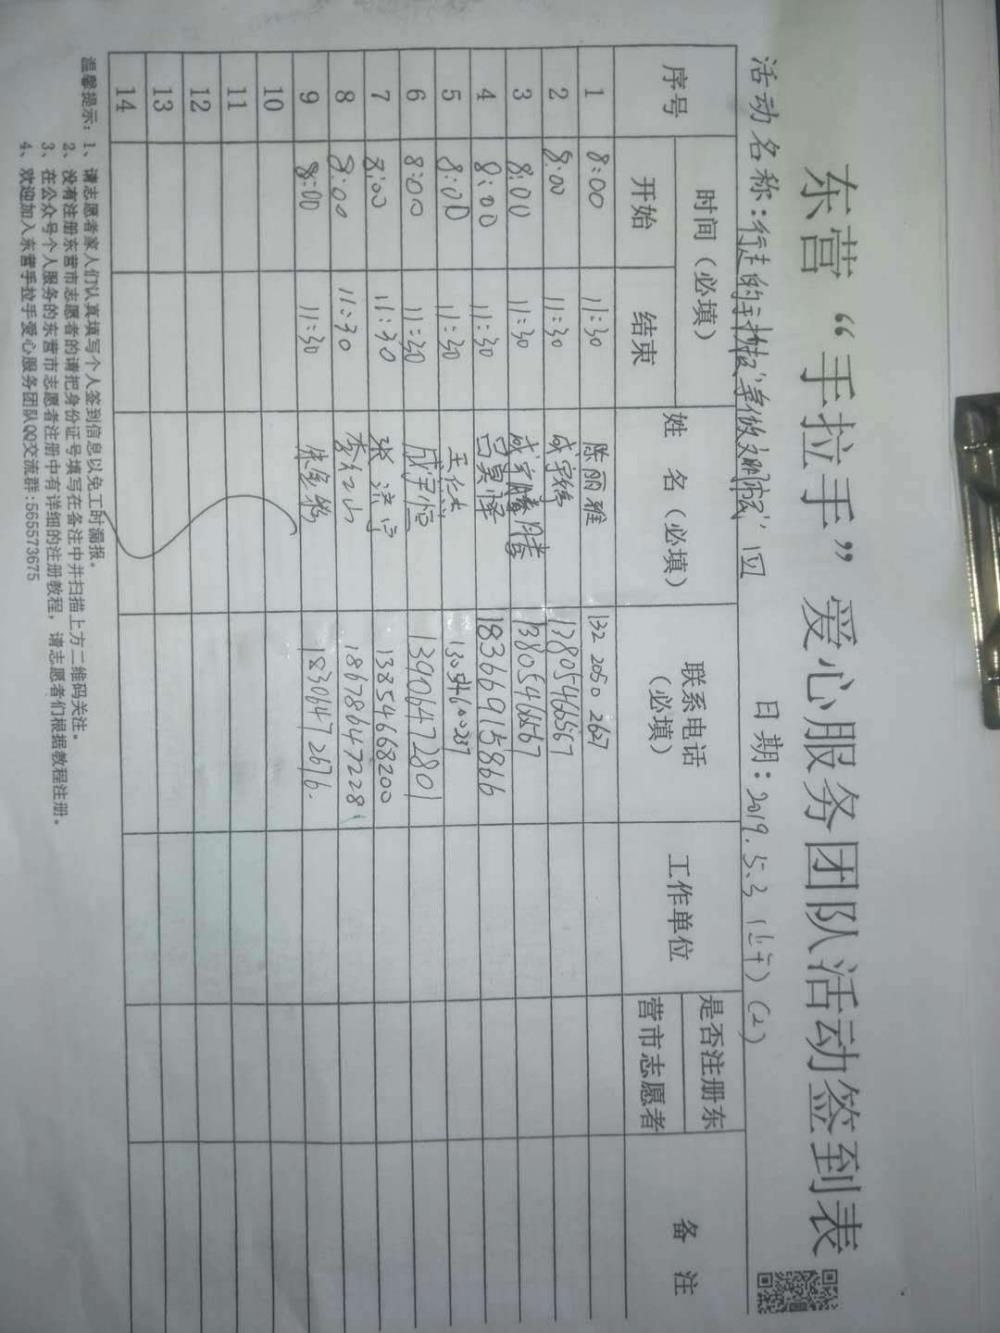 东营“手拉手”爱心服务团队活动签到表
活动名称:行走的手拉手 日期:2019.5.3(上午)(2)
序号 时间(必填) 姓名(必填) 联系电话(必填) 工作单位 是否注册东营市志愿者 备注
开始 结束
1 8:00 11:30 陈丽雅 132 2050 2627
2 8:00 11:30 13805466567
3 8:00 11:30 13805466567
4 8:00 11:30 18366915866
5 8:00 11:30 13054600237
6 8:00 11:30 13906472801
7 8:00 11:30 13854668200
8 8:00 11:30 18678647228
9 8:00 11:30 18306472676.
10
11
12
13
14
温馨提示:1、请志愿者家人们认真填写个人签到信息以免工时漏报。
2、没有注册东营市志愿者的请把身份证号填写在备注中并扫描上方二维码关注。
3、在公众号个人服务的东营市志愿者注册中有详细的注册教程,请志愿者们根据教程注册。
4、欢迎加入东营手拉手爱心服务团队QQ交流群:565573675